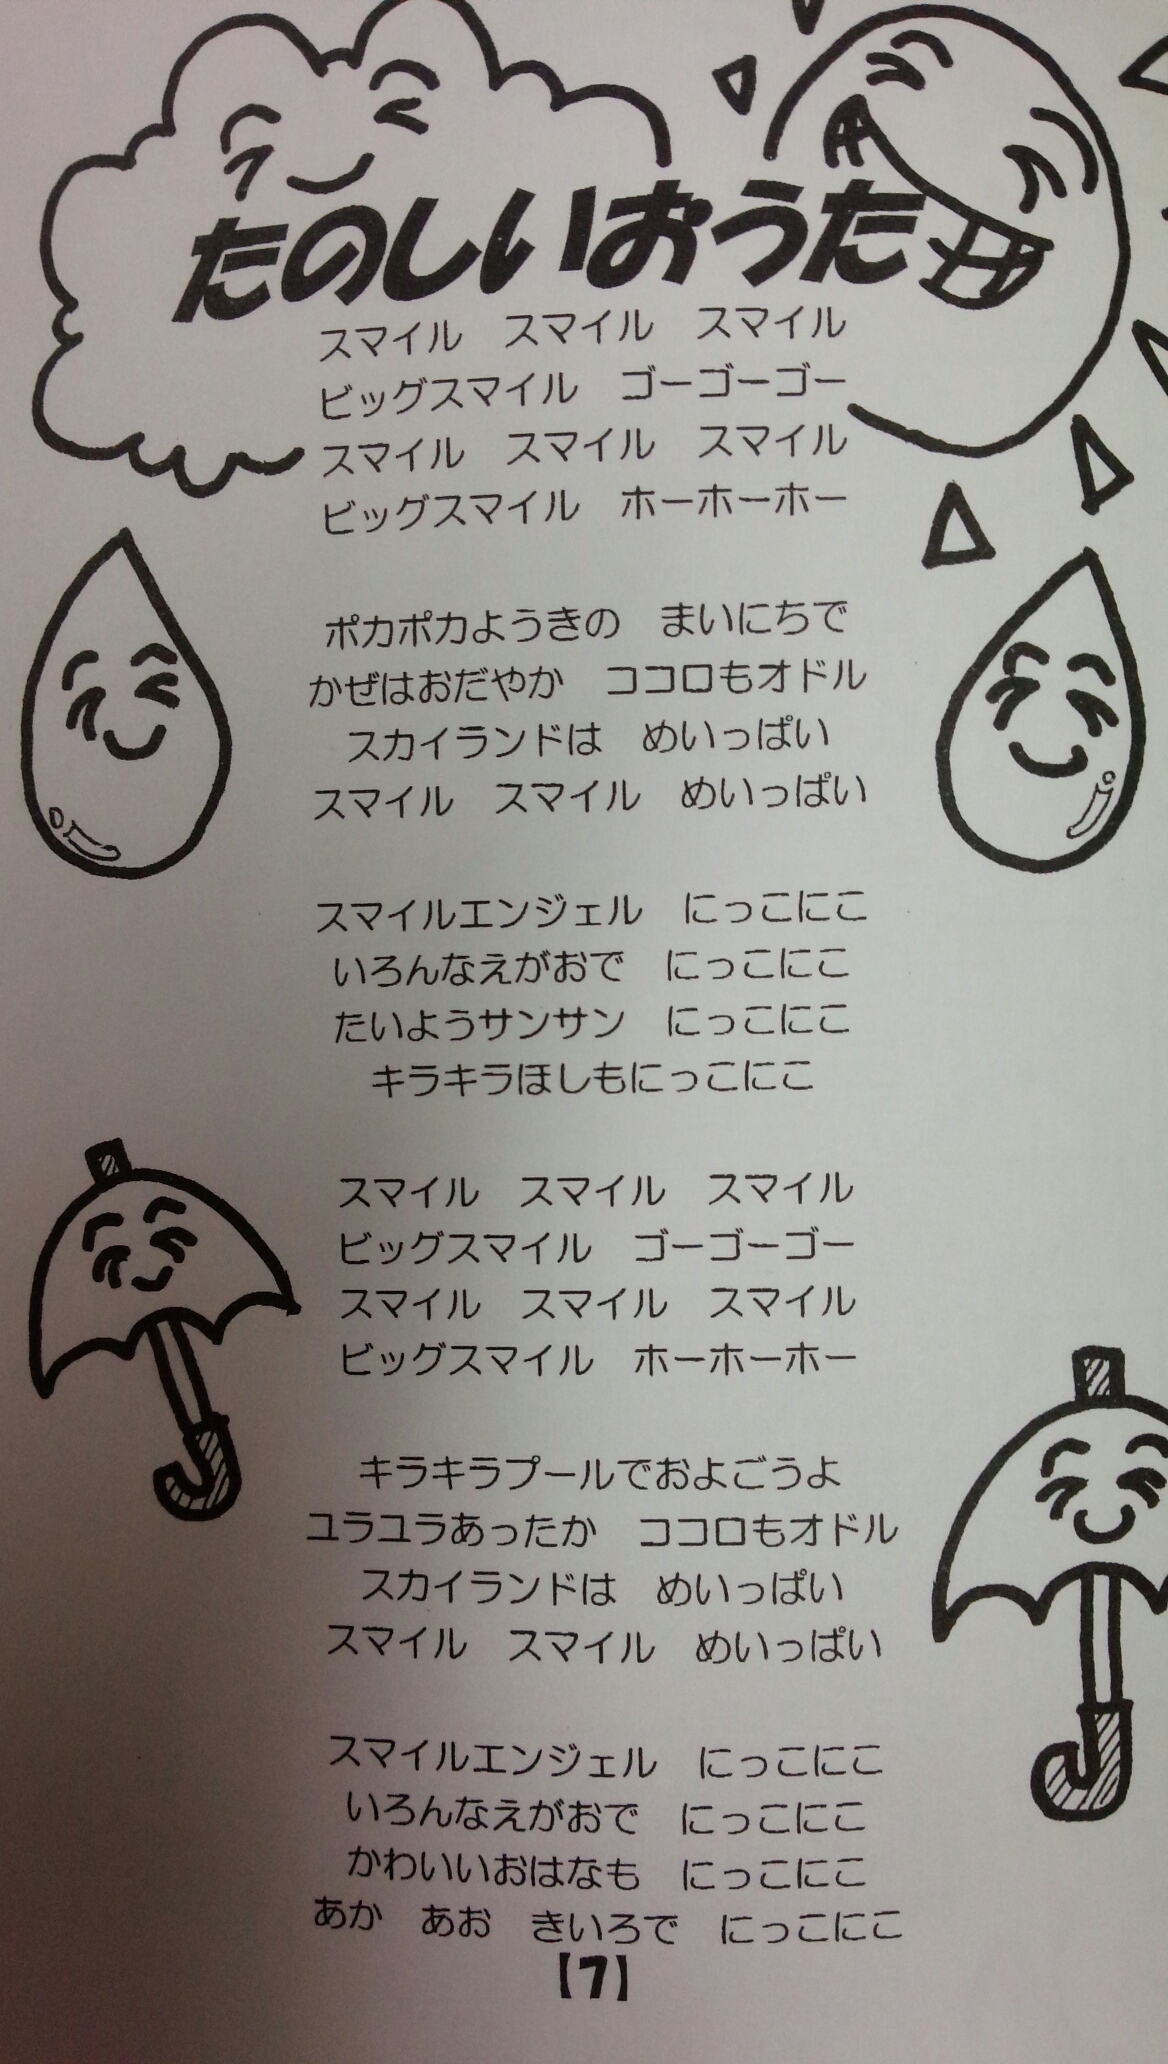 たのしいおうた
スマイル　スマイル　スマイル
ビッグスマイル　ゴーゴーゴー
スマイル　スマイル　スマイル
ビッグスマイル　ホーホーホー
ポカポカようきの　まいにちで
かぜはおだやか　ココロもオドル
スカイランドは　めいっぱい
スマイル　スマイル　めいっぱい
スマイルエンジェル　にっこにこ
いろんなえがおで　にっこにこ
たいようサンサン　にっこにこ
キラキラほしもにっこにこ
スマイル　スマイル　スマイル
ビッグスマイル　ゴーゴーゴー
スマイル　スマイル　スマイル
ビッグスマイル　ホーホーホー
キラキラプールでおよごうよ
ユラユラあったか　ココロもオドル
スカイランドは　めいっぱい
スマイル　スマイル　めいっぱい
スマイルエンジェル　にっこにこ
いろんなえがおで　にっこにこ
かわいいおはなも　にっこにこ
あか　あお　きいろで　にっこにこ
【7】